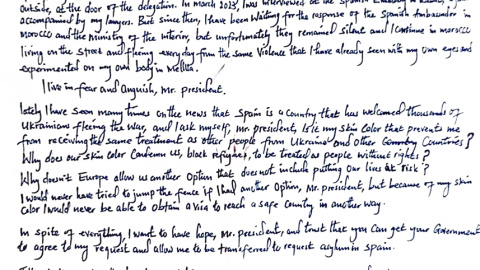 outside, at the door of the delegation. In march 2023, I was interviewed at the Spanish Embassy in Rabat,
accompanied by my lawyers. But since then, I have been waiting for the response of the Spanish Ambassador in
morocco and the ministry of the interior, but unfortunately they remained silent and I continue in morocco
living on the street and fleeing everyday from the same violence that I have already seen with my own eyes and
experimented on my own body in Melilla.
I live in fear and anguish, Mr. president.
lately I have seen many times on the news that Spain is a country that has welcomed thousands of
Ukrainians fleeing the war, and I ask myself, mr. president, Is it my skin color that prevents me
from receiving the same treatment as other people from Ukraine and other Countries?
Why does our skin color Condemn us, black refugees, to be treated as people without rights?
Why doesn't Europe allow us another Option that does not include putting Our lives at risk?
I would never have tried to jump the fence if I had another Option, Mr. president, but because of my skin
color I would never be able to obtain a visa to reach a safe country in another way.
In spite of everything, I want to have hope, Mr. president, and trust that you can get your Government
to agree to my request and allow me to be transferred to request asylum in Spain.